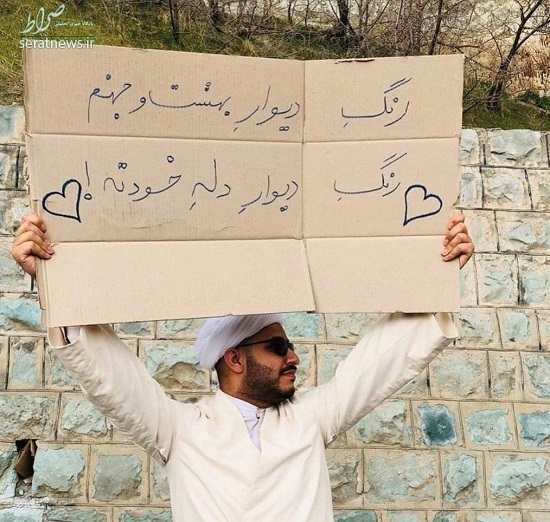 صراط
seratnews.ir
رنگِ دیوارِ بهشت و جهنم
رنگِ دیوارِ دلِ خودته!